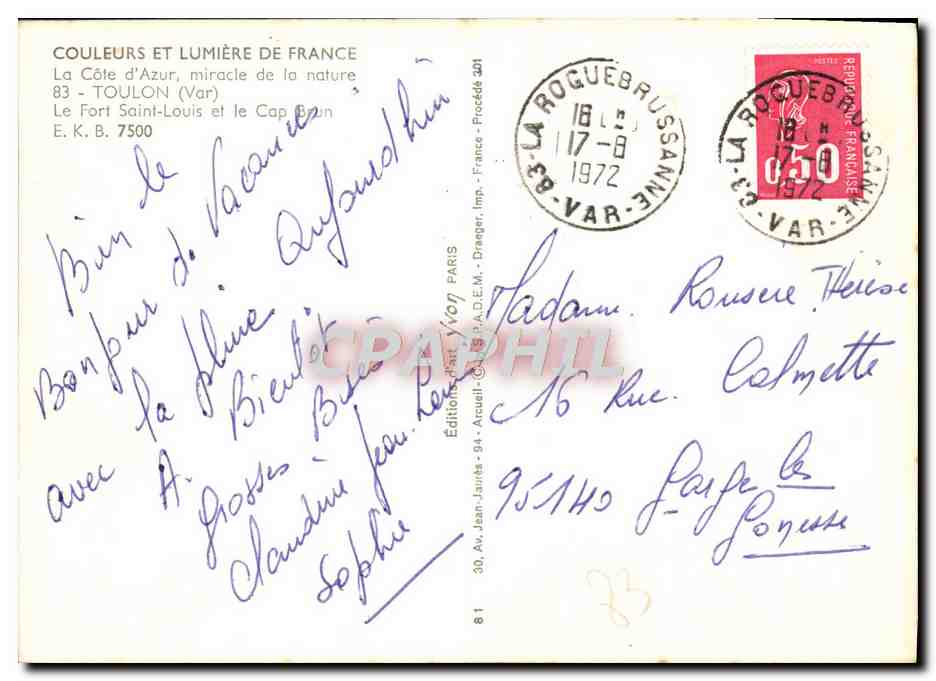 COULEURS ET LUMIÈRE DE FRANCE
La Côte d'Azur, miracle de la nature
83 - TOULON (Var)
Le Fort Saint-Louis et le Cap Brun
E. K. B. 7500
Bien le
Bonjour de Vacances
avec la pluie Aujourd'hui
A Bientôt
Grosses Bises
Claudine Jean-Louis
Sophie
Editions d'art YVON PARIS
30, Av. Jean-Jaurès - 94 - Arcueil - © by S.P.A.D.E.M. - Draeger, Imp. - France - Procédé 301
81
83-LA ROQUEBRUSSANNE
18 H
17-8
1972
-VAR-
POSTES
REPUBLIQUE FRANCAISE
0.50
83-LA ROQUEBRUSSANNE
18 H
17-8
1972
-VAR-
Madame Thérèse
16 Rue. Calmette
95140 Garge les
Gonesse
CPAPHIL